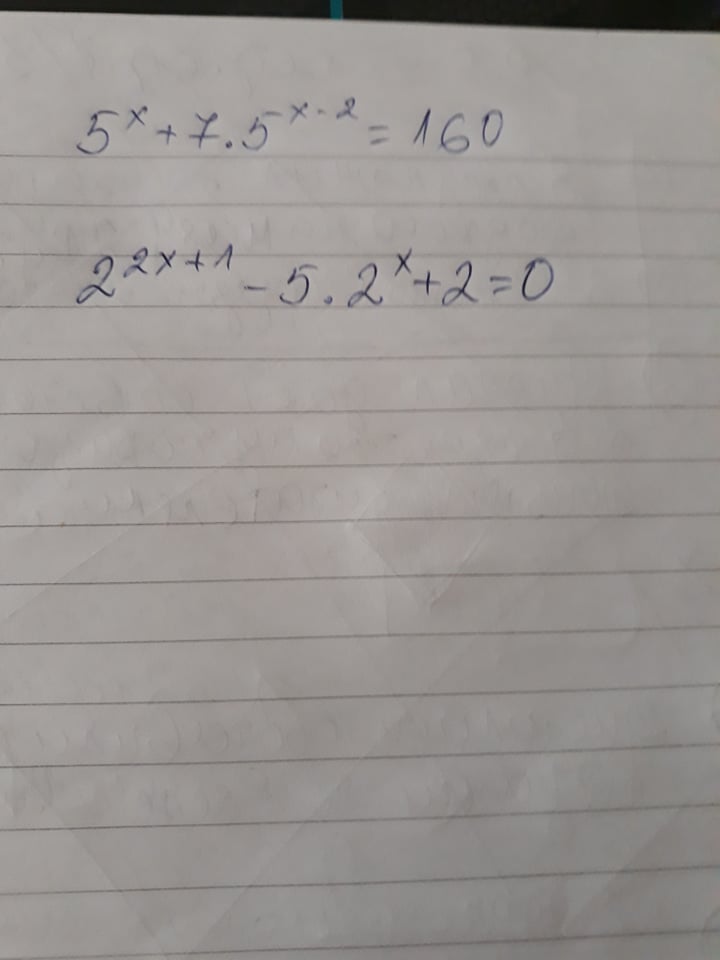 5^x + 7 . 5^{x-2} = 160
2^{2x+1} - 5 . 2^x + 2 = 0